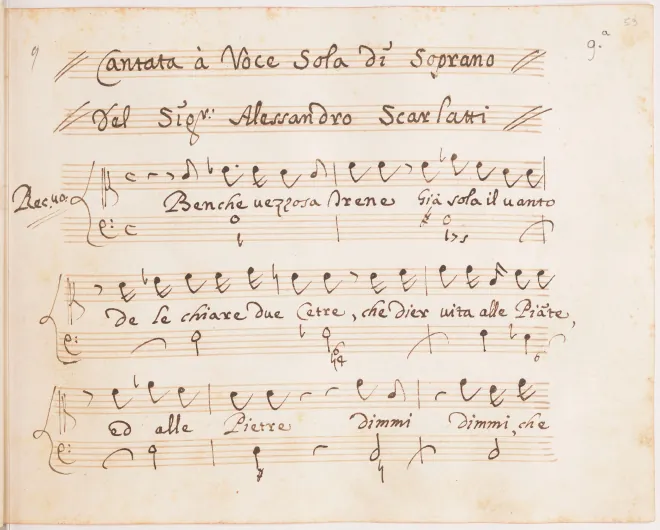 53
9 9.ª
Cantata à Voce Sola di Soprano
Del Sigr: Alessandro Scarlatti
Rec.vo:
Benche uezzosa Irene Già sola il uanto
De le chiare due Cetre, che dier uita alle Piāte,
ed alle Pietre Dimmi Dimmi, che